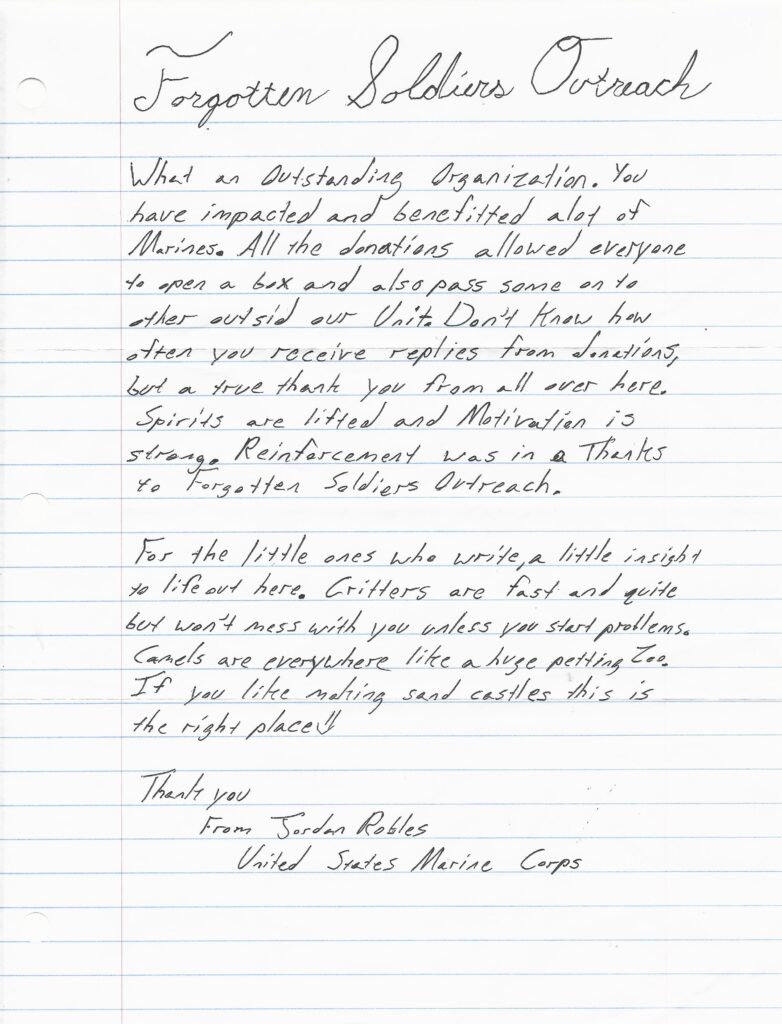 Forgotten Soldiers Outreach
What an Outstanding Organization. You
have impacted and benefitted alot of
Marines. All the donations allowed everyone
to open a box and also pass some on to
other outsid our Unit. Don't Know how
often you receive replies from donations,
but a true thank you from all over here.
Spirits are lifted and Motivation is
strong. Reinforcement was in a Thanks
to Forgotten Soldiers Outreach.
For the little ones who write, a little insight
to life out here. Critters are fast and quite
but won't mess with you unless you start problems.
Camels are everywhere like a huge petting Zoo.
If you like making sand castles this is
the right place!!
Thank you
From Jordan Robles
United States Marine Corps